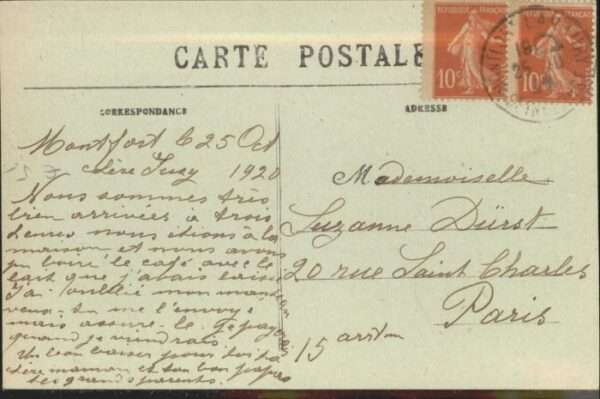 CARTE POSTALE
RÉPUBLIQUE FRANÇAISE
10c
10c
CORRESPONDANCE
ADRESSE
Montfort le 25 Oct
1920
chère Suzy
Nous sommes très
bien arrivées a trois
heures nous étions à la
maison et nous avons
pu boire le café avec le
lait que j'avais laissé
J'ai oublié mon manteau
veux-tu me l'envoyé
mais assure-le je payerais
quand je viendrais
Un bon baiser pour toi ta
chère maman et ton bon papa
tes grands parents.
Mademoiselle
Suzanne Dürst
20 rue Saint Charles
Paris
15 arr